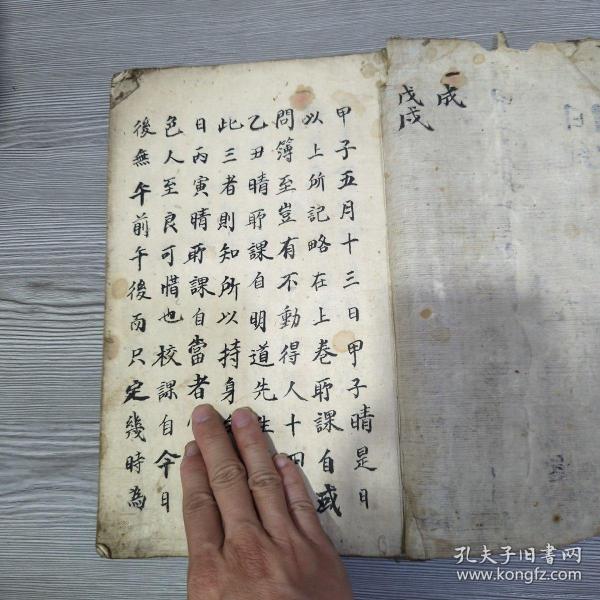 一成
戊戌
甲子五月十三日甲子晴是日
以上所記略在上卷耶課自或
問簿至豈有不動得人十四
乙丑晴耶課自明道先生
此三者則知所以持身
日丙寅晴耶課自當者
色人至良可惜也校課自今日
後無午前午後而只定幾時為
孔夫子旧书网
www.kongfz.com